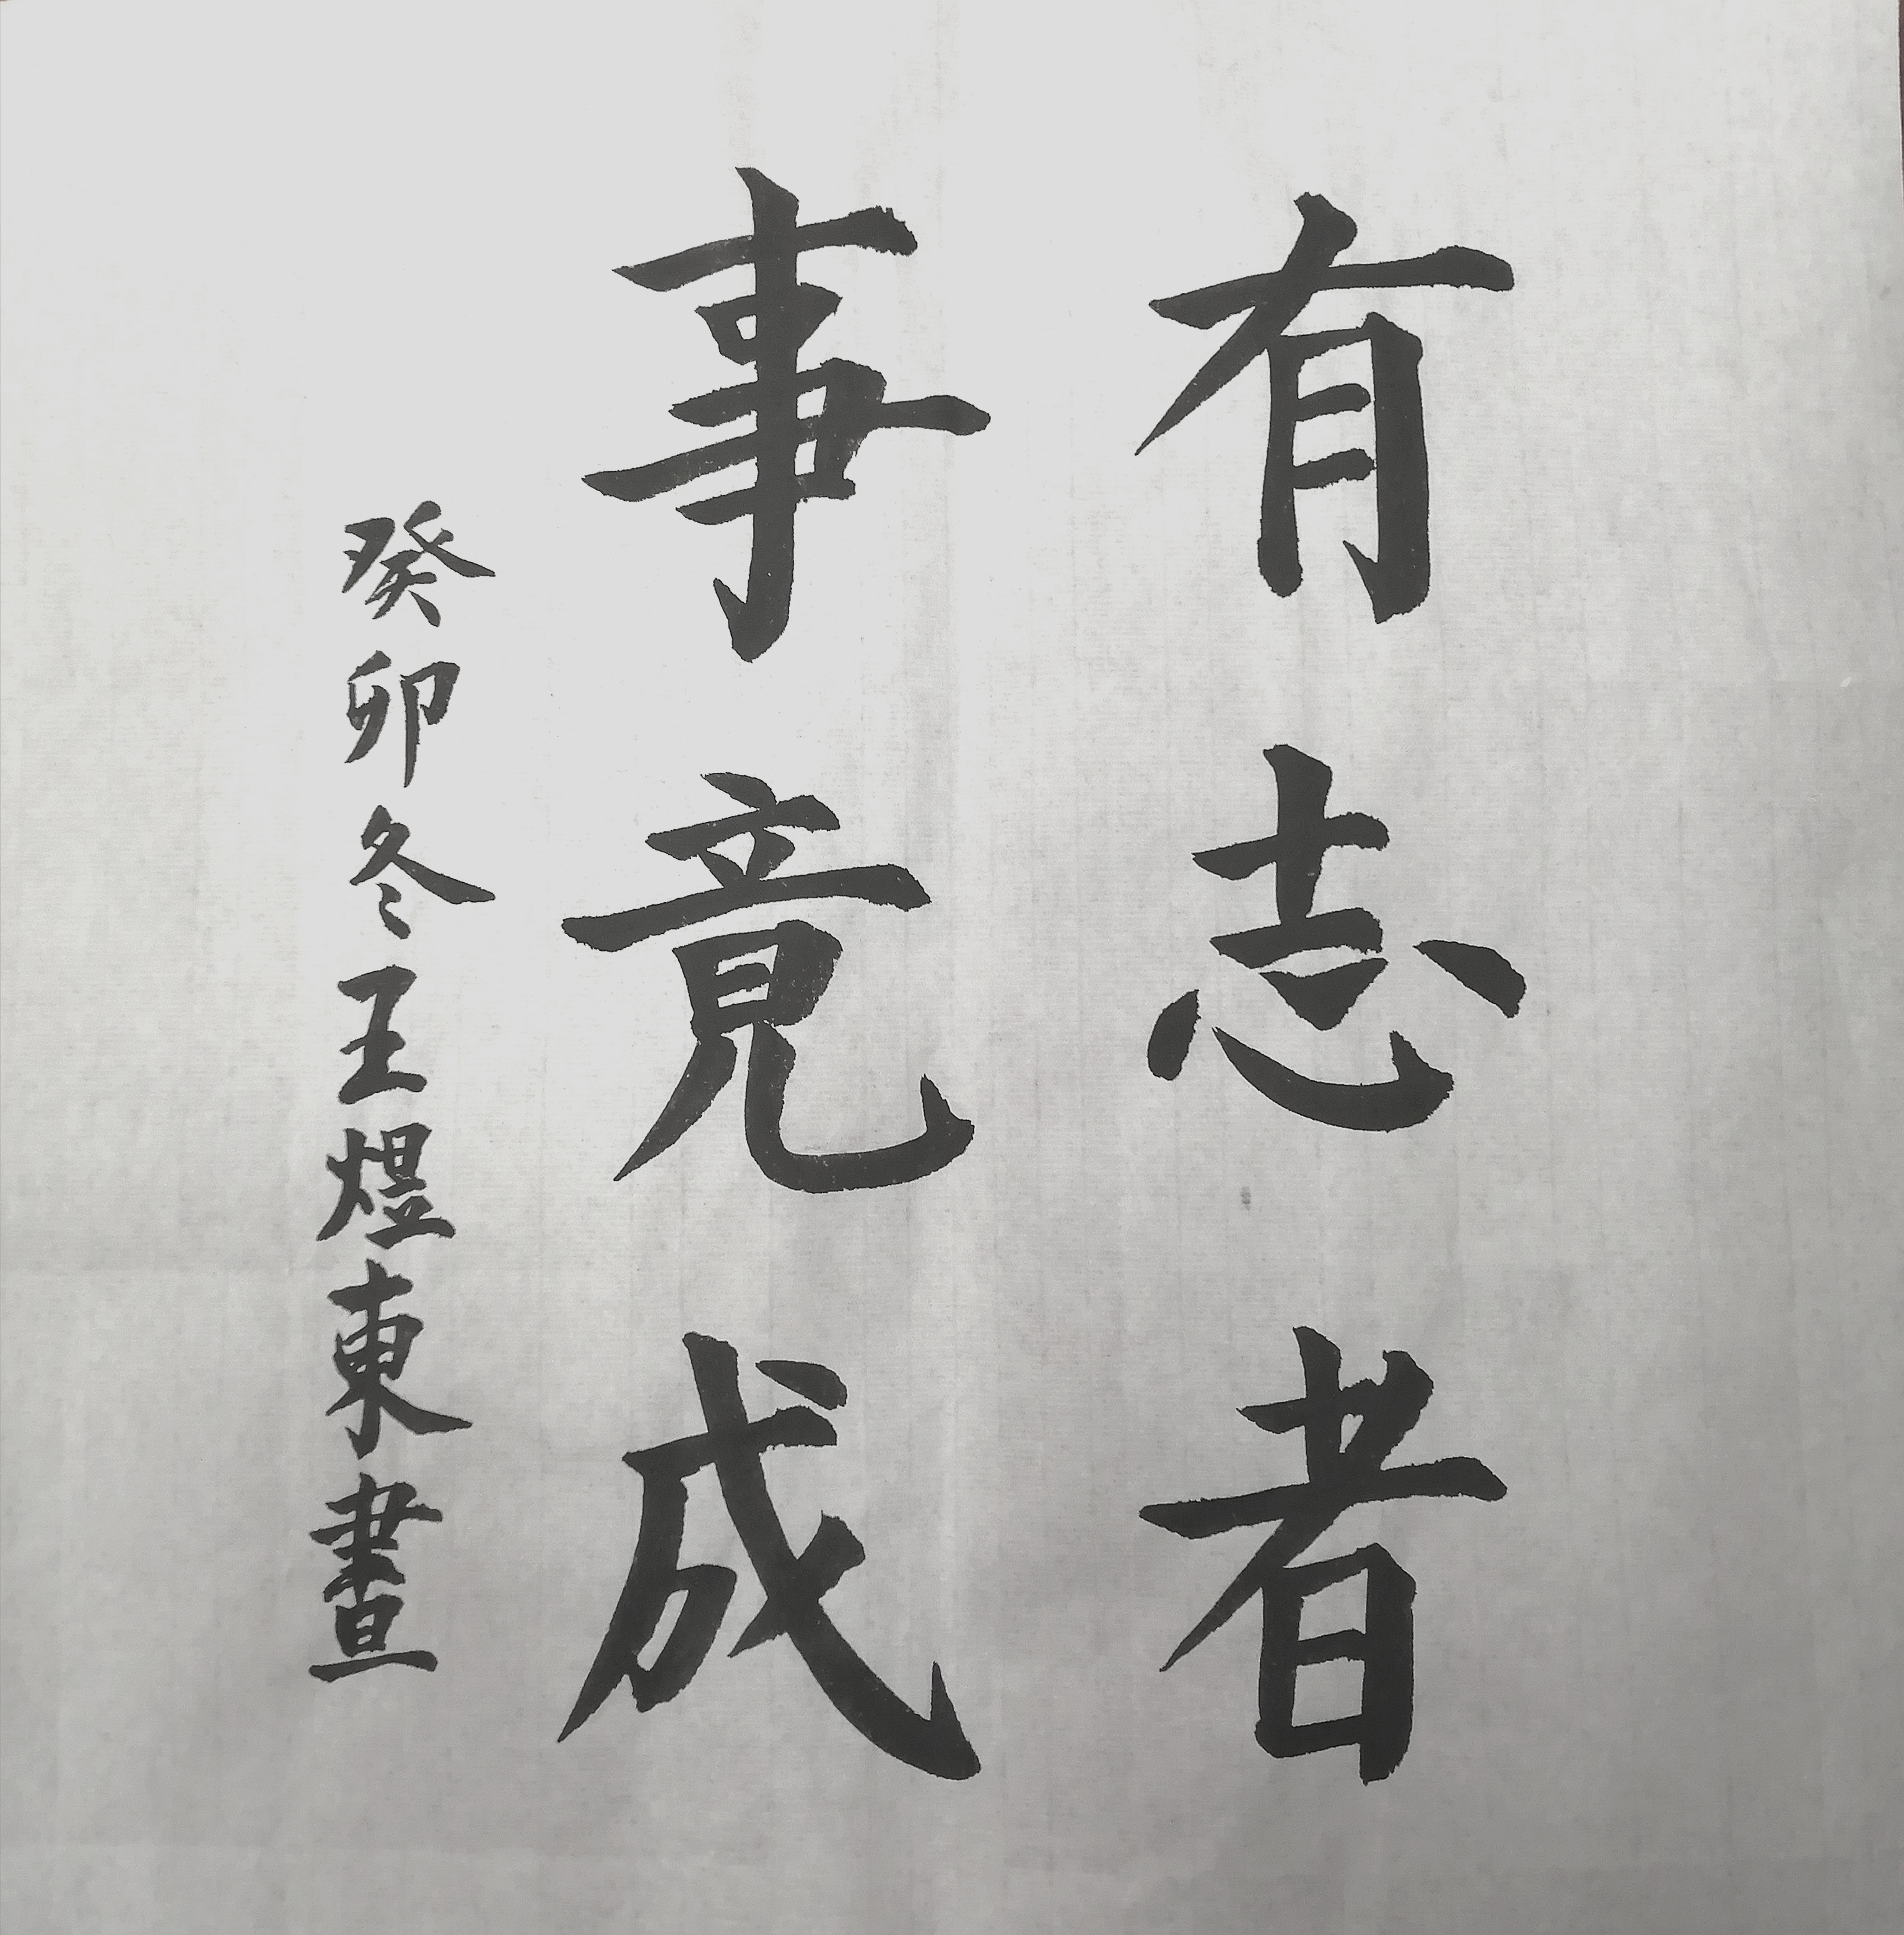 有志者
事竟成
癸卯冬王煜東書